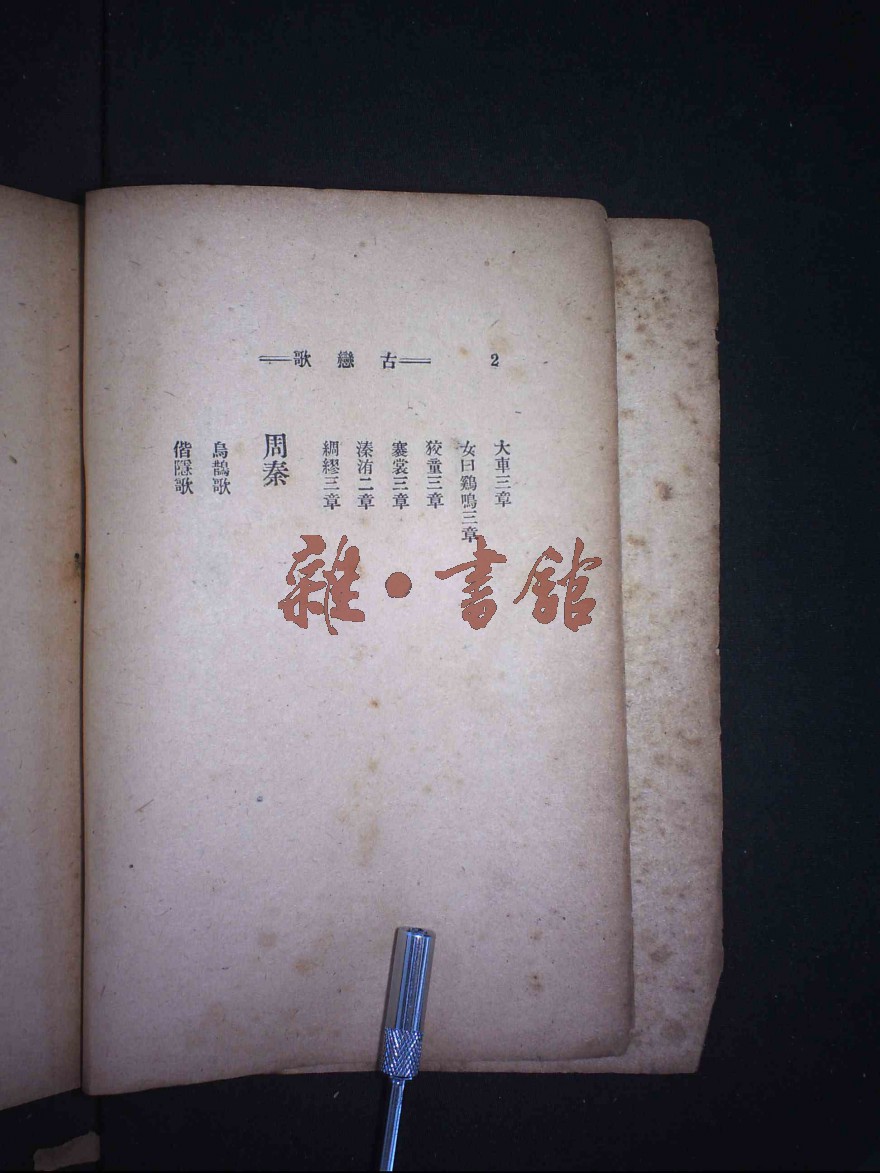 2 ══古戀歌══
大車三章
女曰鷄鳴三章
狡童三章
褰裳三章
溱洧二章
綢繆三章
周秦
烏鵲歌
偕隱歌
雜·書館